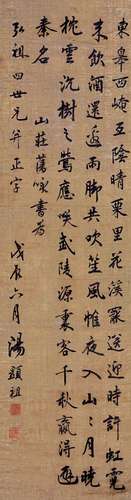 東皋西崦互陰晴栗里花溪送迎時許虹霓
來飲酒還邀雨腳共吹笙風帷夜入山山月曉
枕雲沉樹樹鶯應喚武陵源裏客千秋贏得避
秦名 山莊舊咏書為
弘祖四世兄并正字 戊辰六月 湯顯祖